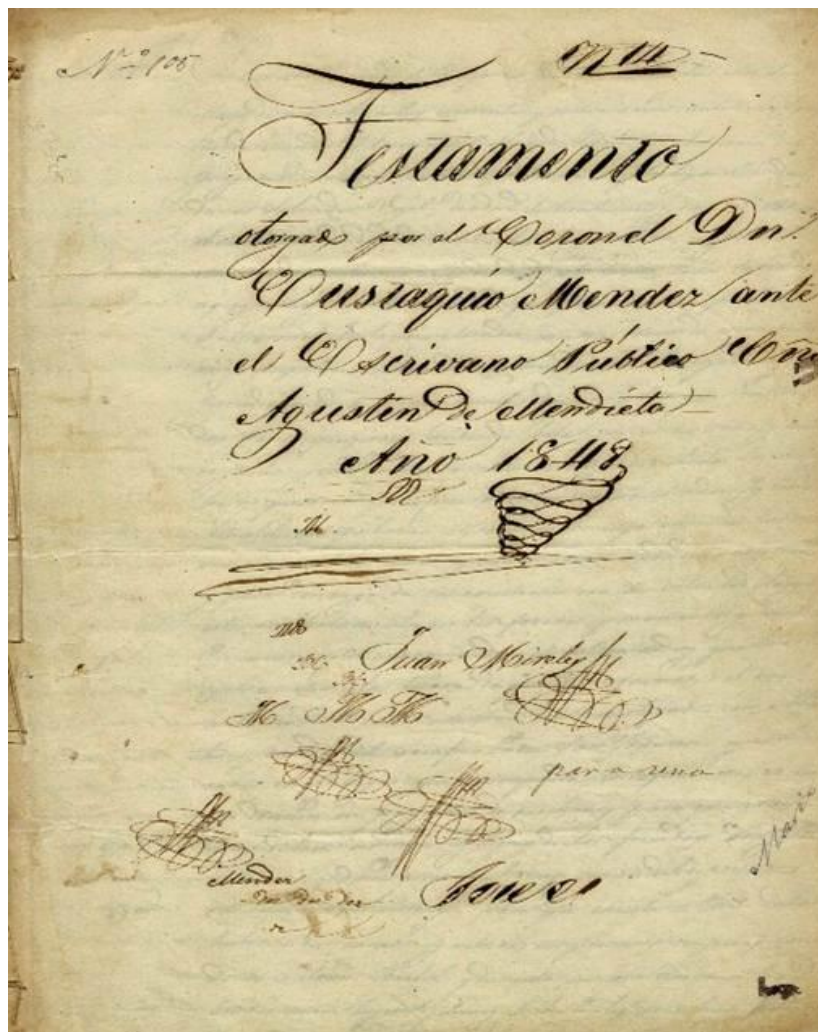 Nº 105
Nº 14
Testamento
otorgado por el Coronel Dn.
Eustaquio Mendez ante
el Escrivano Público
Agustin de Mendieta
Año 1848
M.
Juan
M M M
para una
Mendez